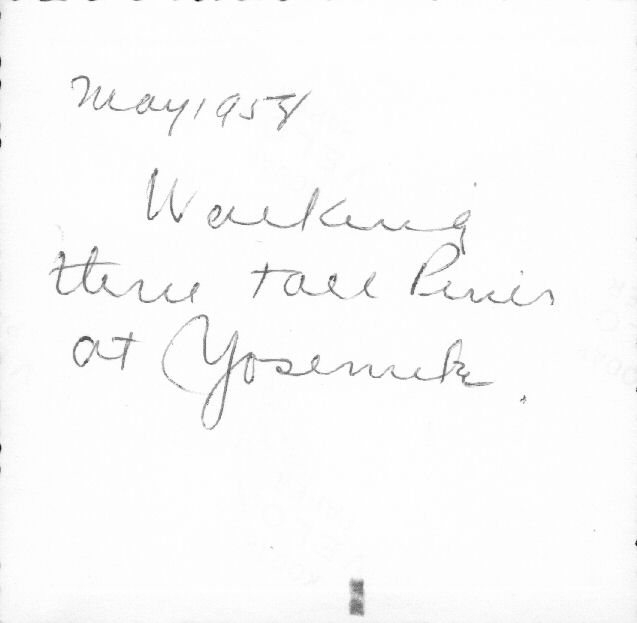 May 1958
Walking
thru tall Pines
at Yosemite.